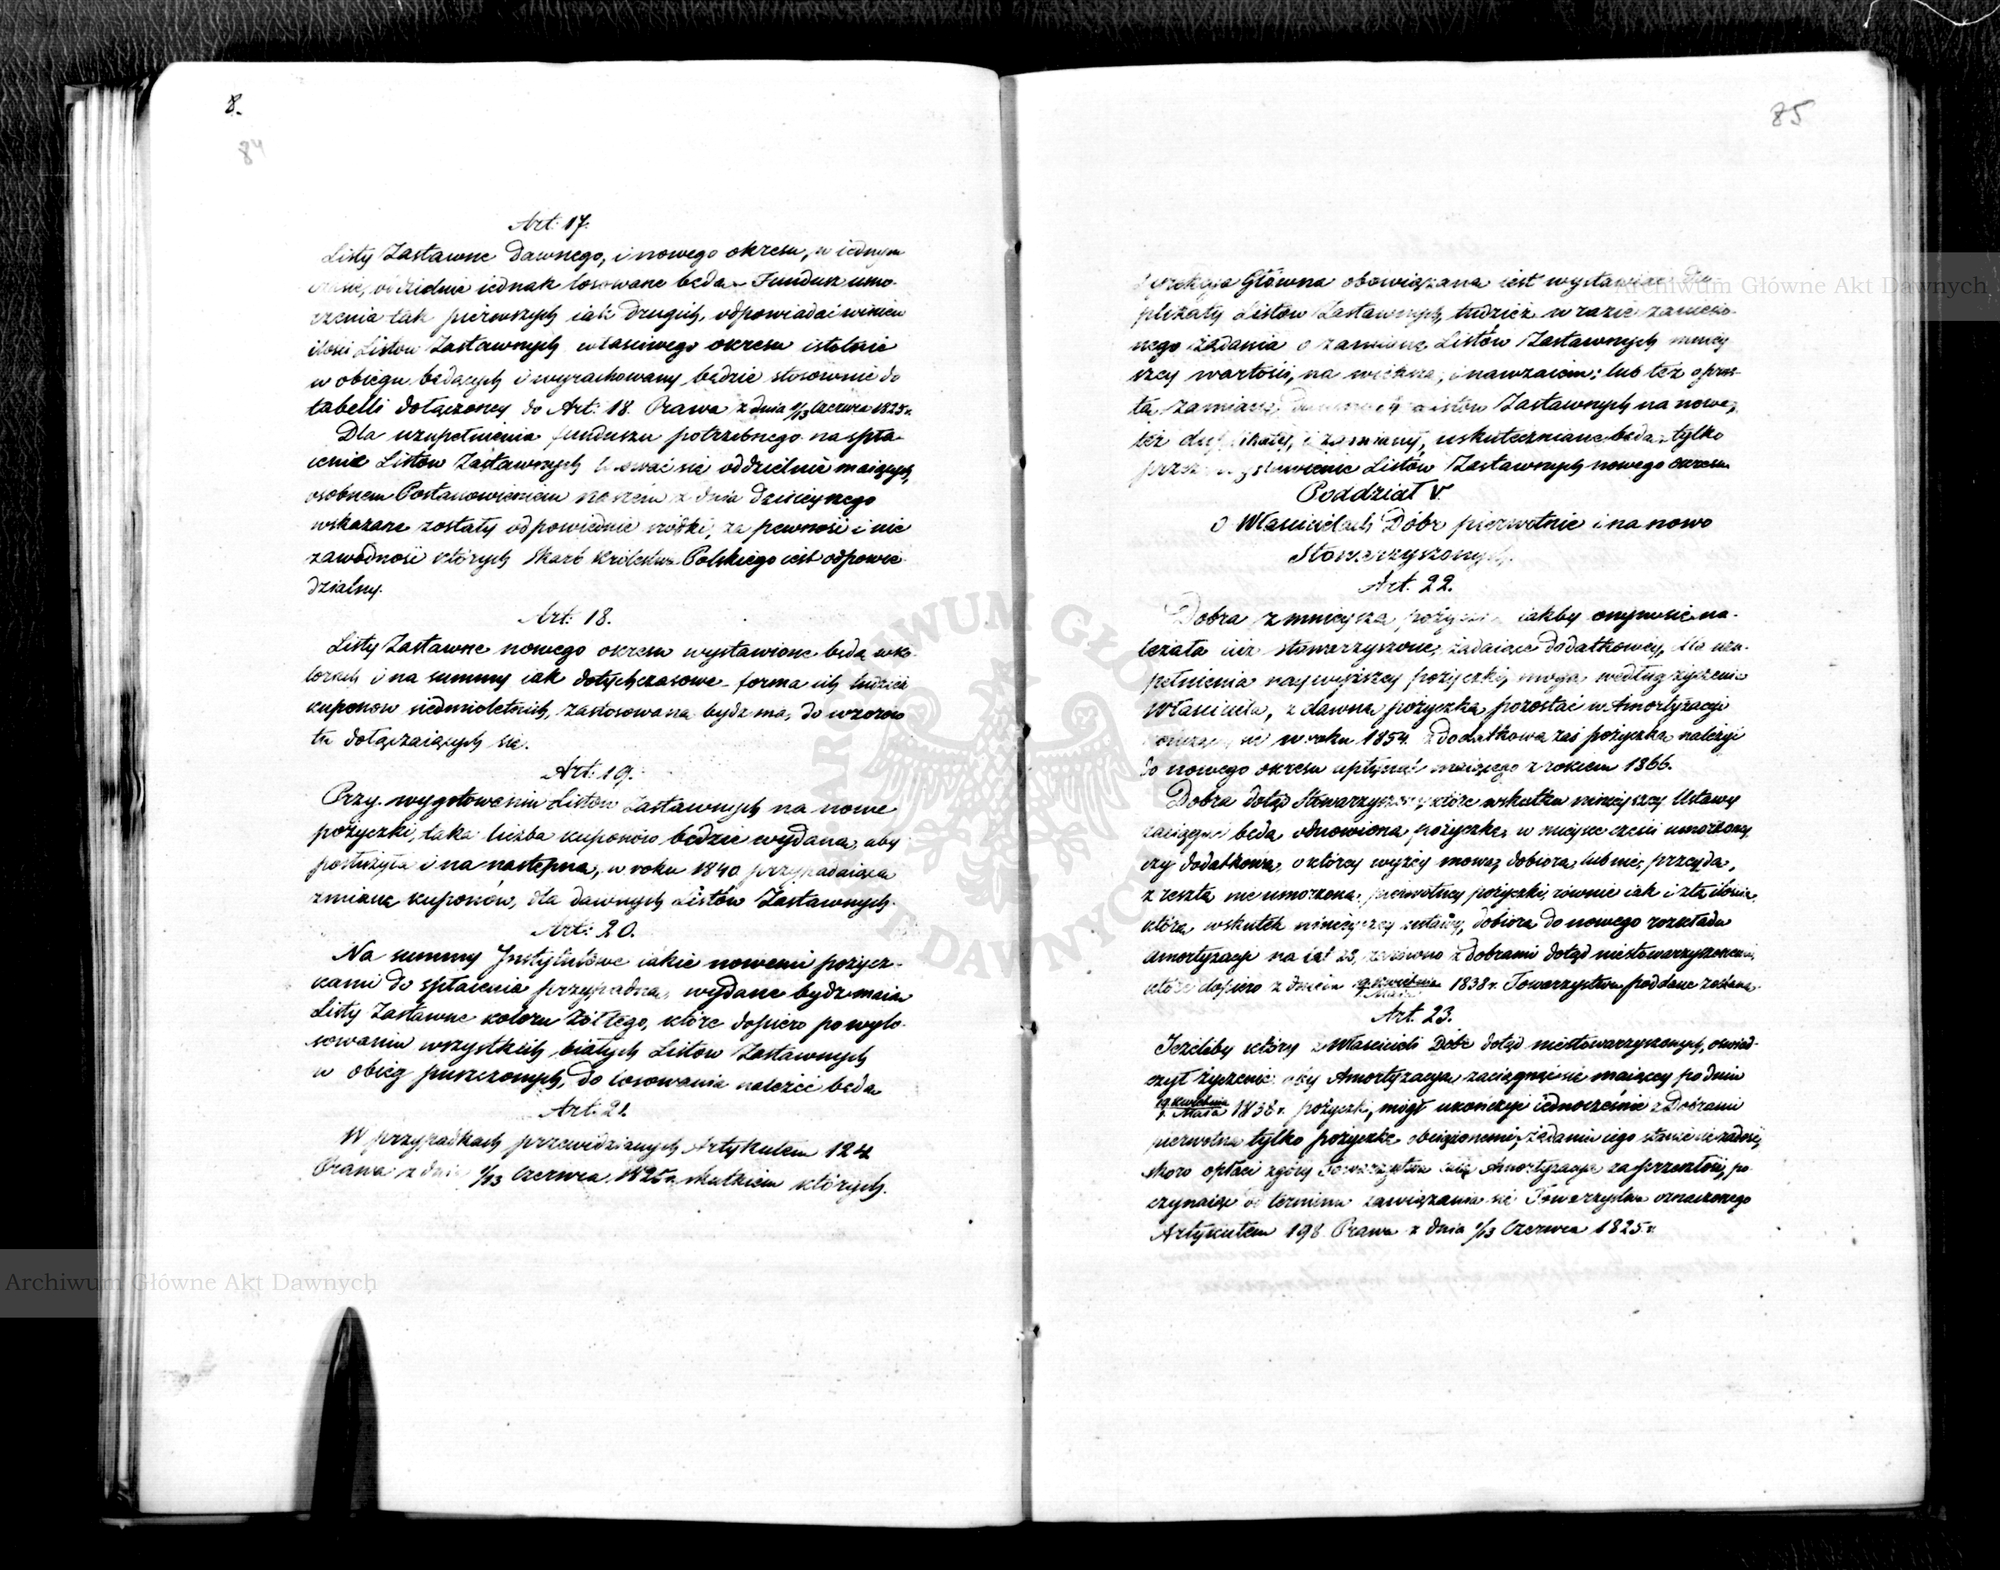 8.
84
Art: 17.
Listy Zastawne dawnego, i nowego okresu, w iednym
czasie, oddzielnie iednak losowane będą. Fundusz umo-
rzenia tak pierwszych iak drugich, odpowiadać winien
ilości Listów Zastawnych właściwego okresu istotnie
w obiegu będących i wyrachowany będzie stosownie do
tabelli dołączoney do Art: 18. Prawa z dnia 1/13 Czerwca 1825 r.
Dla uzupełnienia funduszu potrzebnego na spła-
cenie Listów Zastawnych losować się oddzielnie maiących,
osobnem Postanowieniem naszem z dnia dzisieyszego
wskazane zostały odpowiednie środki, za pewność i nie
zawodność których Skarb Królestwa Polskiego iest odpowie-
dzialny.
Art: 18.
Listy Zastawne nowego okresu wystawione będą w ko-
lorach i na summy iak dotychczasowe - forma ich tudzież
kuponów siedmioletnich, zastosowana bydź ma, do wzorów
tu dołączaiących się.
Art: 19.
Przy wygotowaniu Listów Zastawnych na nowe
pożyczki, taka liczba kuponów będzie wydana, aby
posłużyła i na następną, w roku 1840 przypadaiącą
zmianę kuponów, dla dawnych Listów Zastawnych.
Art: 20.
Na summy Instytutowe iakie nowemi pożycz-
kami do spłacenia przypadną, wydane bydź maią
Listy Zastawne koloru żółtego, które dopiero po wylo-
sowaniu wszystkich białych Listów Zastawnych
w obieg puszczonych, do losowania należeć będą
Art: 21.
W przypadkach przewidzianych Artykułem 124
Prawa z dnia 1/13 Czerwca 1825 r. skutkiem których.
85
Dyrekcya Główna obowiązana iest wystawiać du-
plikaty Listów Zastawnych, tudzież w razie zaniesio-
nego żądania o zamianę Listów Zastawnych mniey
szey wartości, na większą, i nawzaiem; lub też o pros-
tą zamianę dawnych Listów Zastawnych na nowe,
też duplikaty, i zamiany, uskuteczniane będą tylko
przez wystawienie Listów Zastawnych nowego okresu
Poddział V.
O Właścicielach Dóbr pierwotnie i na nowo
Stowarzyszonych.
Art. 22.
Dobra z mnieyszą pożyczką iakby onym się na-
leżała iuż stowarzyszone, żądaiące dodatkowey, dla uzu-
pełnienia naywyższey pożyczki, mogą według życzenia
Właściciela, z dawną pożyczką pozostać w Amortyzacyi
kończącey się w roku 1854. z dodatkową zaś pożyczką należyć
do nowego okresu upłynąć maiącego z rokiem 1866.
Dobra dotąd Stowarzyszone, które wskutku ninieyszey Ustawy
zaciągną będą odnowioną pożyczkę, w mieysce części umorzoney
czy dodatkową, o którey wyżey mowa, dobiorą, lub nie, przeydą,
z resztą nie umorzoną, pierwotney pożyczki, równie iak i z tą ilością,
którą wskutek ninieyszey ustawy, dobiorą do nowego rozkładu
Amortyzacyi na lat 28, zarówno z dobrami dotąd niestowarzyszonemi,
które dopiero z dniem 19 Kwietnia / 1 Maia 1838 r. Towarzystwu poddane zostaną.
Art. 23.
Jeżeliby który z Właścicieli Dóbr dotąd niestowarzyszonych, oświad-
czył życzenie: aby Amortyzacya zaciągnąć się maiącey po dniu
19 Kwietnia / 1 Maia 1838 r. pożyczki, mógł ukończyć iednocześnie z Dobrami
pierwotną tylko pożyczką obciążonemi, żądaniu iego stanie się zadość,
skoro opłaci z góry Towarzystwu całą Amortyzacyą za przeszłość, po-
czynaiąc od terminu zawiązania się Towarzystwa oznaczonego
Artykułem 198. Prawa z dnia 1/13 Czerwca 1825 r.
Archiwum Główne Akt Dawnych
Archiwum Główne Akt Dawnych
ARCHIWUM GŁÓWNE AKT DAWNYCH